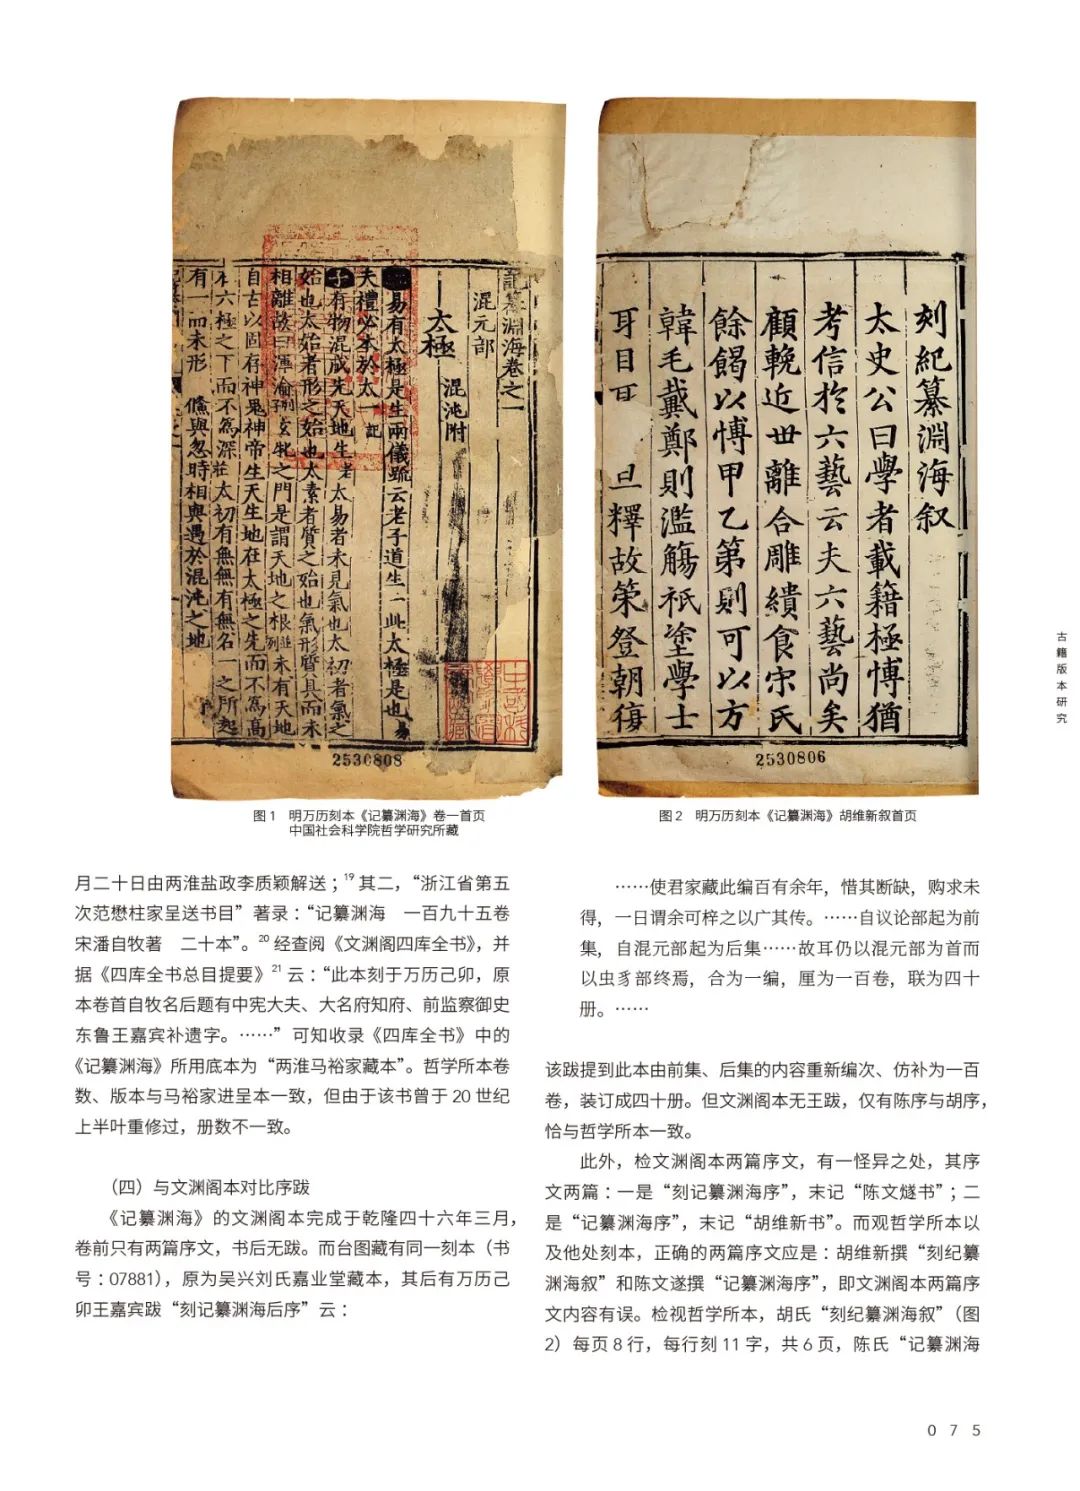 記纂淵海卷之一
混元部
太極 混沌附
易有太極是生兩儀疏云老子道生一此太極是也易
夫禮必本於太一記
子有物混成先天地生老太易者未見氣也太初者氣之
始也太始者形之始也太素者質之始也氣形質具而未
相離故曰渾淪列玄牝之門是謂天地之根並列未有天地
自古以固存神鬼神帝生天生地在太極之先而不為高
在六極之下而不為深莊太初有無無有無名一之所起
有一而未形 儵與忽時相與遇於混沌之地
2530808
刻紀纂淵海叙
太史公曰學者載籍極博猶
考信於六藝云夫六藝尚矣
顧輓近世離合雕繢食宋氏
餘餲以愽甲乙第則可以方
韓毛戴鄭則濫觴祇塗學士
耳目耳 旦釋故策登朝復
2530806
图 1 明万历刻本《记纂渊海》卷一首页
中国社会科学院哲学研究所藏
图 2 明万历刻本《记纂渊海》胡维新叙首页
月二十日由两淮盐政李质颖解送；19 其二，“浙江省第五
次范懋柱家呈送书目”著录：“记纂渊海 一百九十五卷
宋潘自牧著 二十本”。20 经查阅《文渊阁四库全书》，并
据《四库全书总目提要》21 云：“此本刻于万历己卯，原
本卷首自牧名后题有中宪大夫、大名府知府、前监察御史
东鲁王嘉宾补遗字。……”可知收录《四库全书》中的
《记纂渊海》所用底本为“两淮马裕家藏本”。哲学所本卷
数、版本与马裕家进呈本一致，但由于该书曾于 20 世纪
上半叶重修过，册数不一致。
（四）与文渊阁本对比序跋
《记纂渊海》的文渊阁本完成于乾隆四十六年三月，
卷前只有两篇序文，书后无跋。而台图藏有同一刻本（书
号：07881），原为吴兴刘氏嘉业堂藏本，其后有万历己
卯王嘉宾跋“刻记纂渊海后序”云：
……使君家藏此编百有余年，惜其断缺，购求未
得，一日谓余可梓之以广其传。……自议论部起为前
集，自混元部起为后集……故耳仍以混元部为首而
以虫豸部终焉，合为一编，厘为一百卷，联为四十
册。……
该跋提到此本由前集、后集的内容重新编次、仿补为一百
卷，装订成四十册。但文渊阁本无王跋，仅有陈序与胡序，
恰与哲学所本一致。
此外，检文渊阁本两篇序文，有一怪异之处，其序
文两篇：一是“刻记纂渊海序”，末记“陈文燧书”；二
是“记纂渊海序”，末记“胡维新书”。而观哲学所本以
及他处刻本，正确的两篇序文应是：胡维新撰“刻纪纂
渊海叙”和陈文遂撰“记纂渊海序”，即文渊阁本两篇序
文内容有误。检视哲学所本，胡氏“刻纪纂渊海叙”（图
2）每页 8 行，每行刻 11 字，共 6 页，陈氏“记纂渊海
古籍版本研究
075